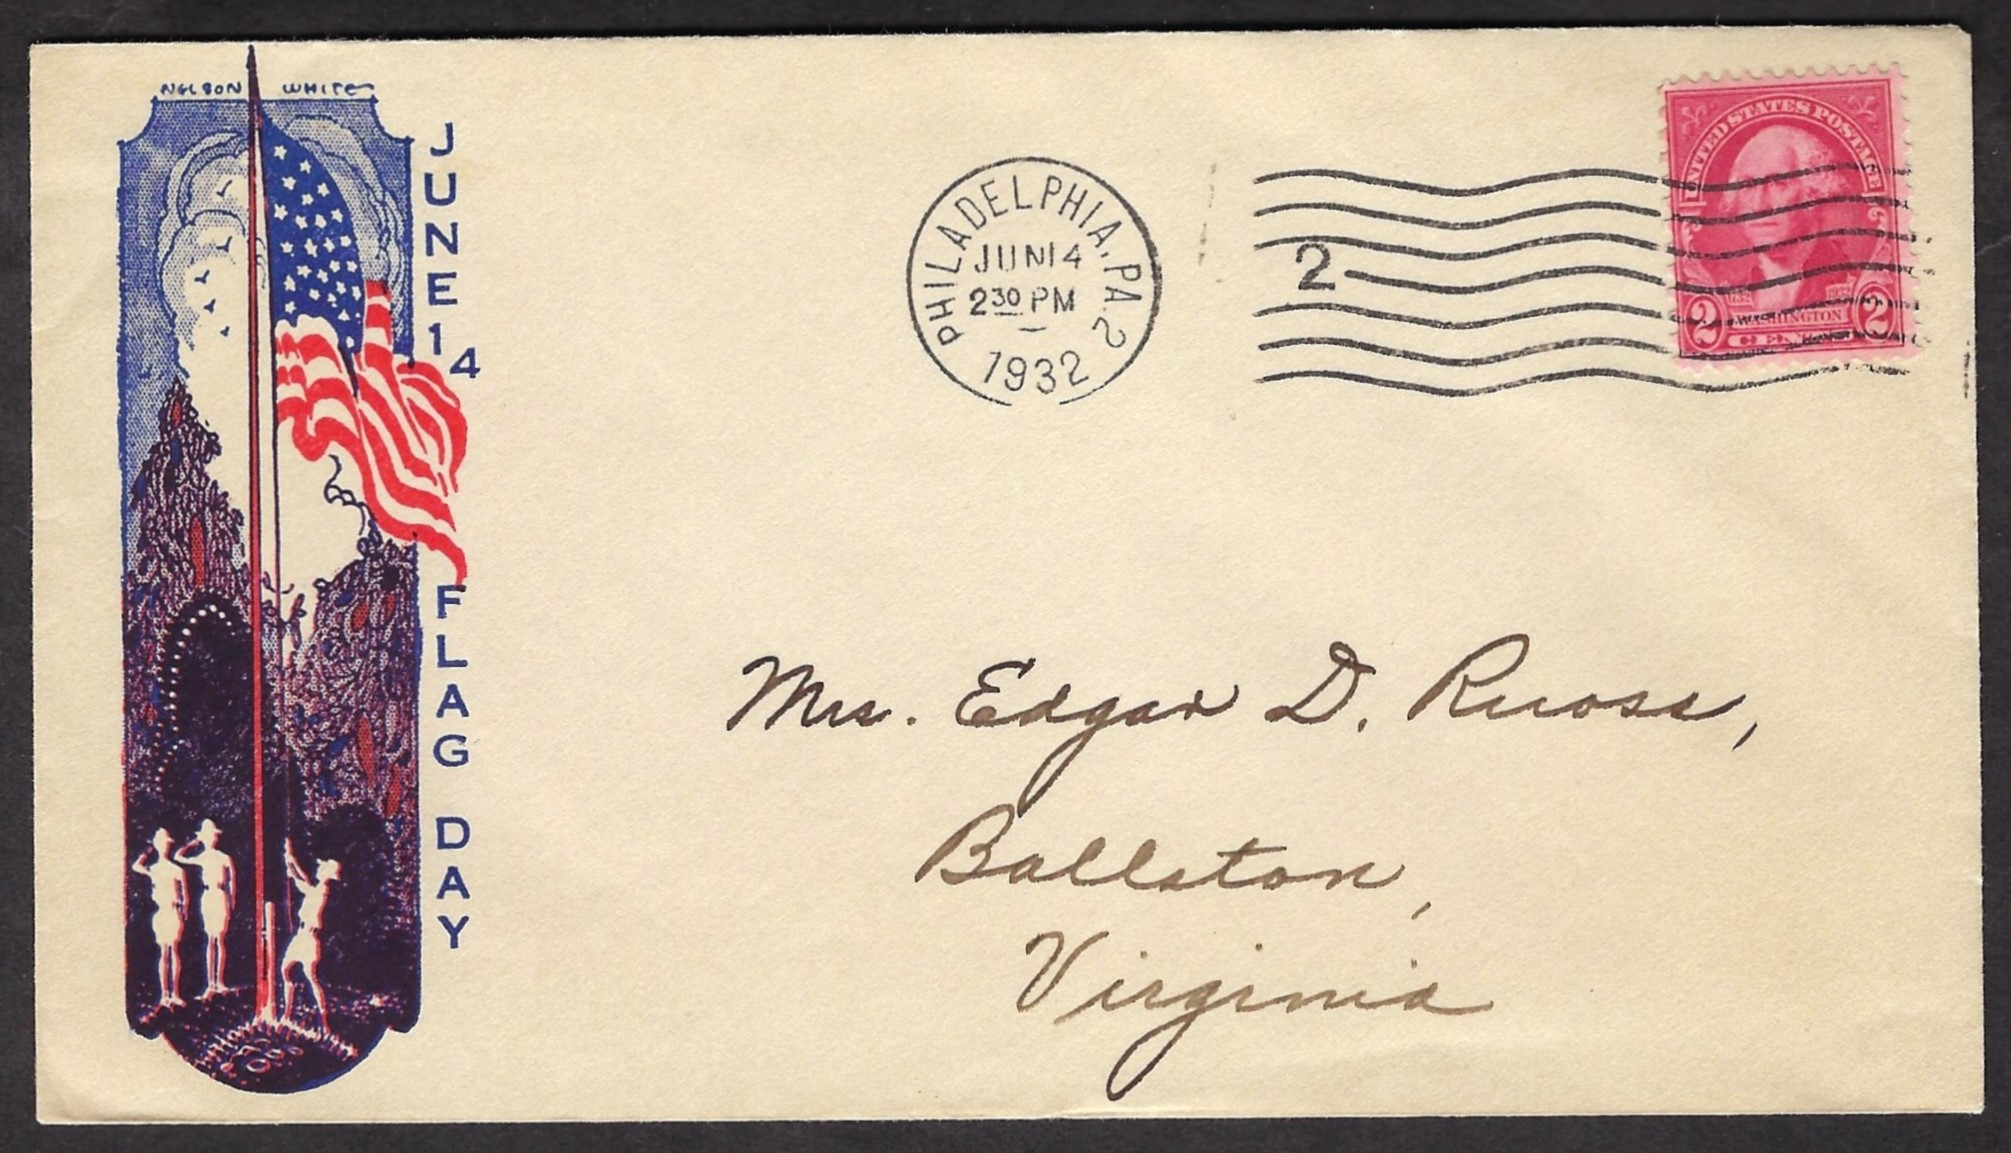 NELSON WHITE
JUNE 14
FLAG DAY
PHILADELPHIA, PA. 2
JUN 14
2 30 PM
1932
2
UNITED STATES POSTAGE
1732 1932
2 WASHINGTON 2
Mrs. Edgar D. Ruoss,
Ballston,
Virginia